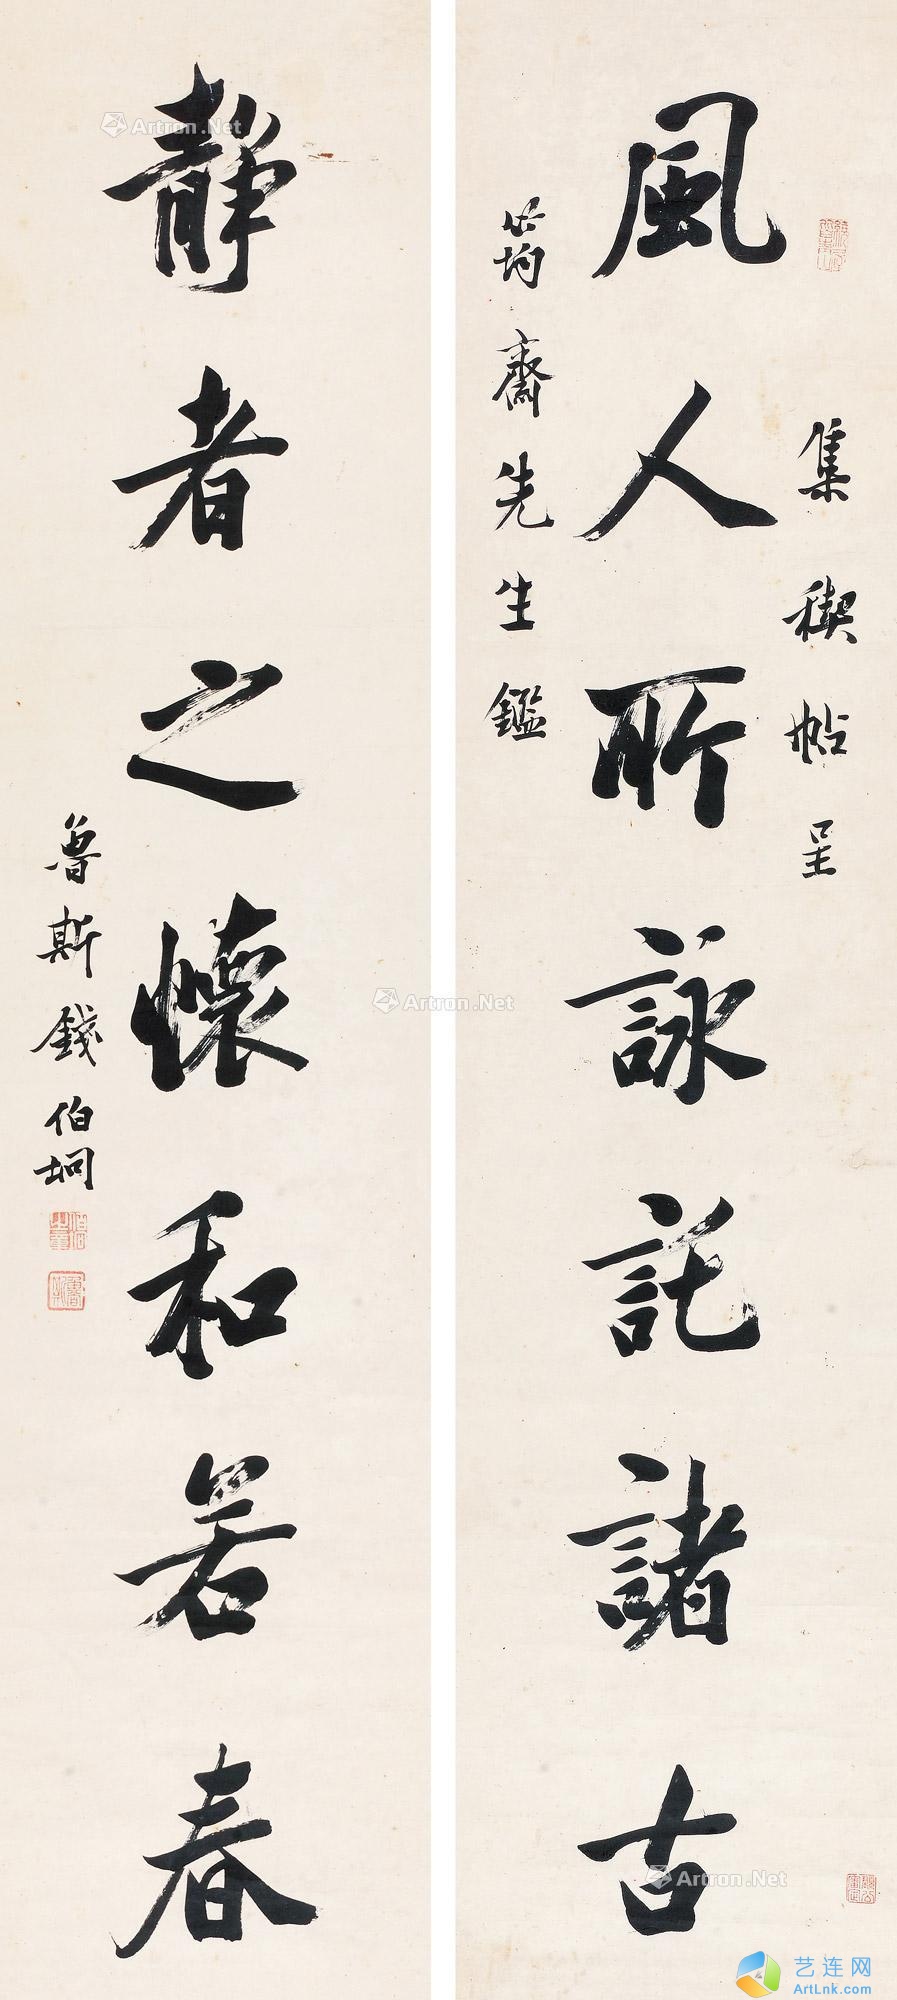 風人所詠託諸古
集稧帖呈
齋先生鑑
靜者之懷和若春
魯斯錢伯坰
Artron.Net
Artron.Net
Artron.Net
艺连网
ArtLnk.com